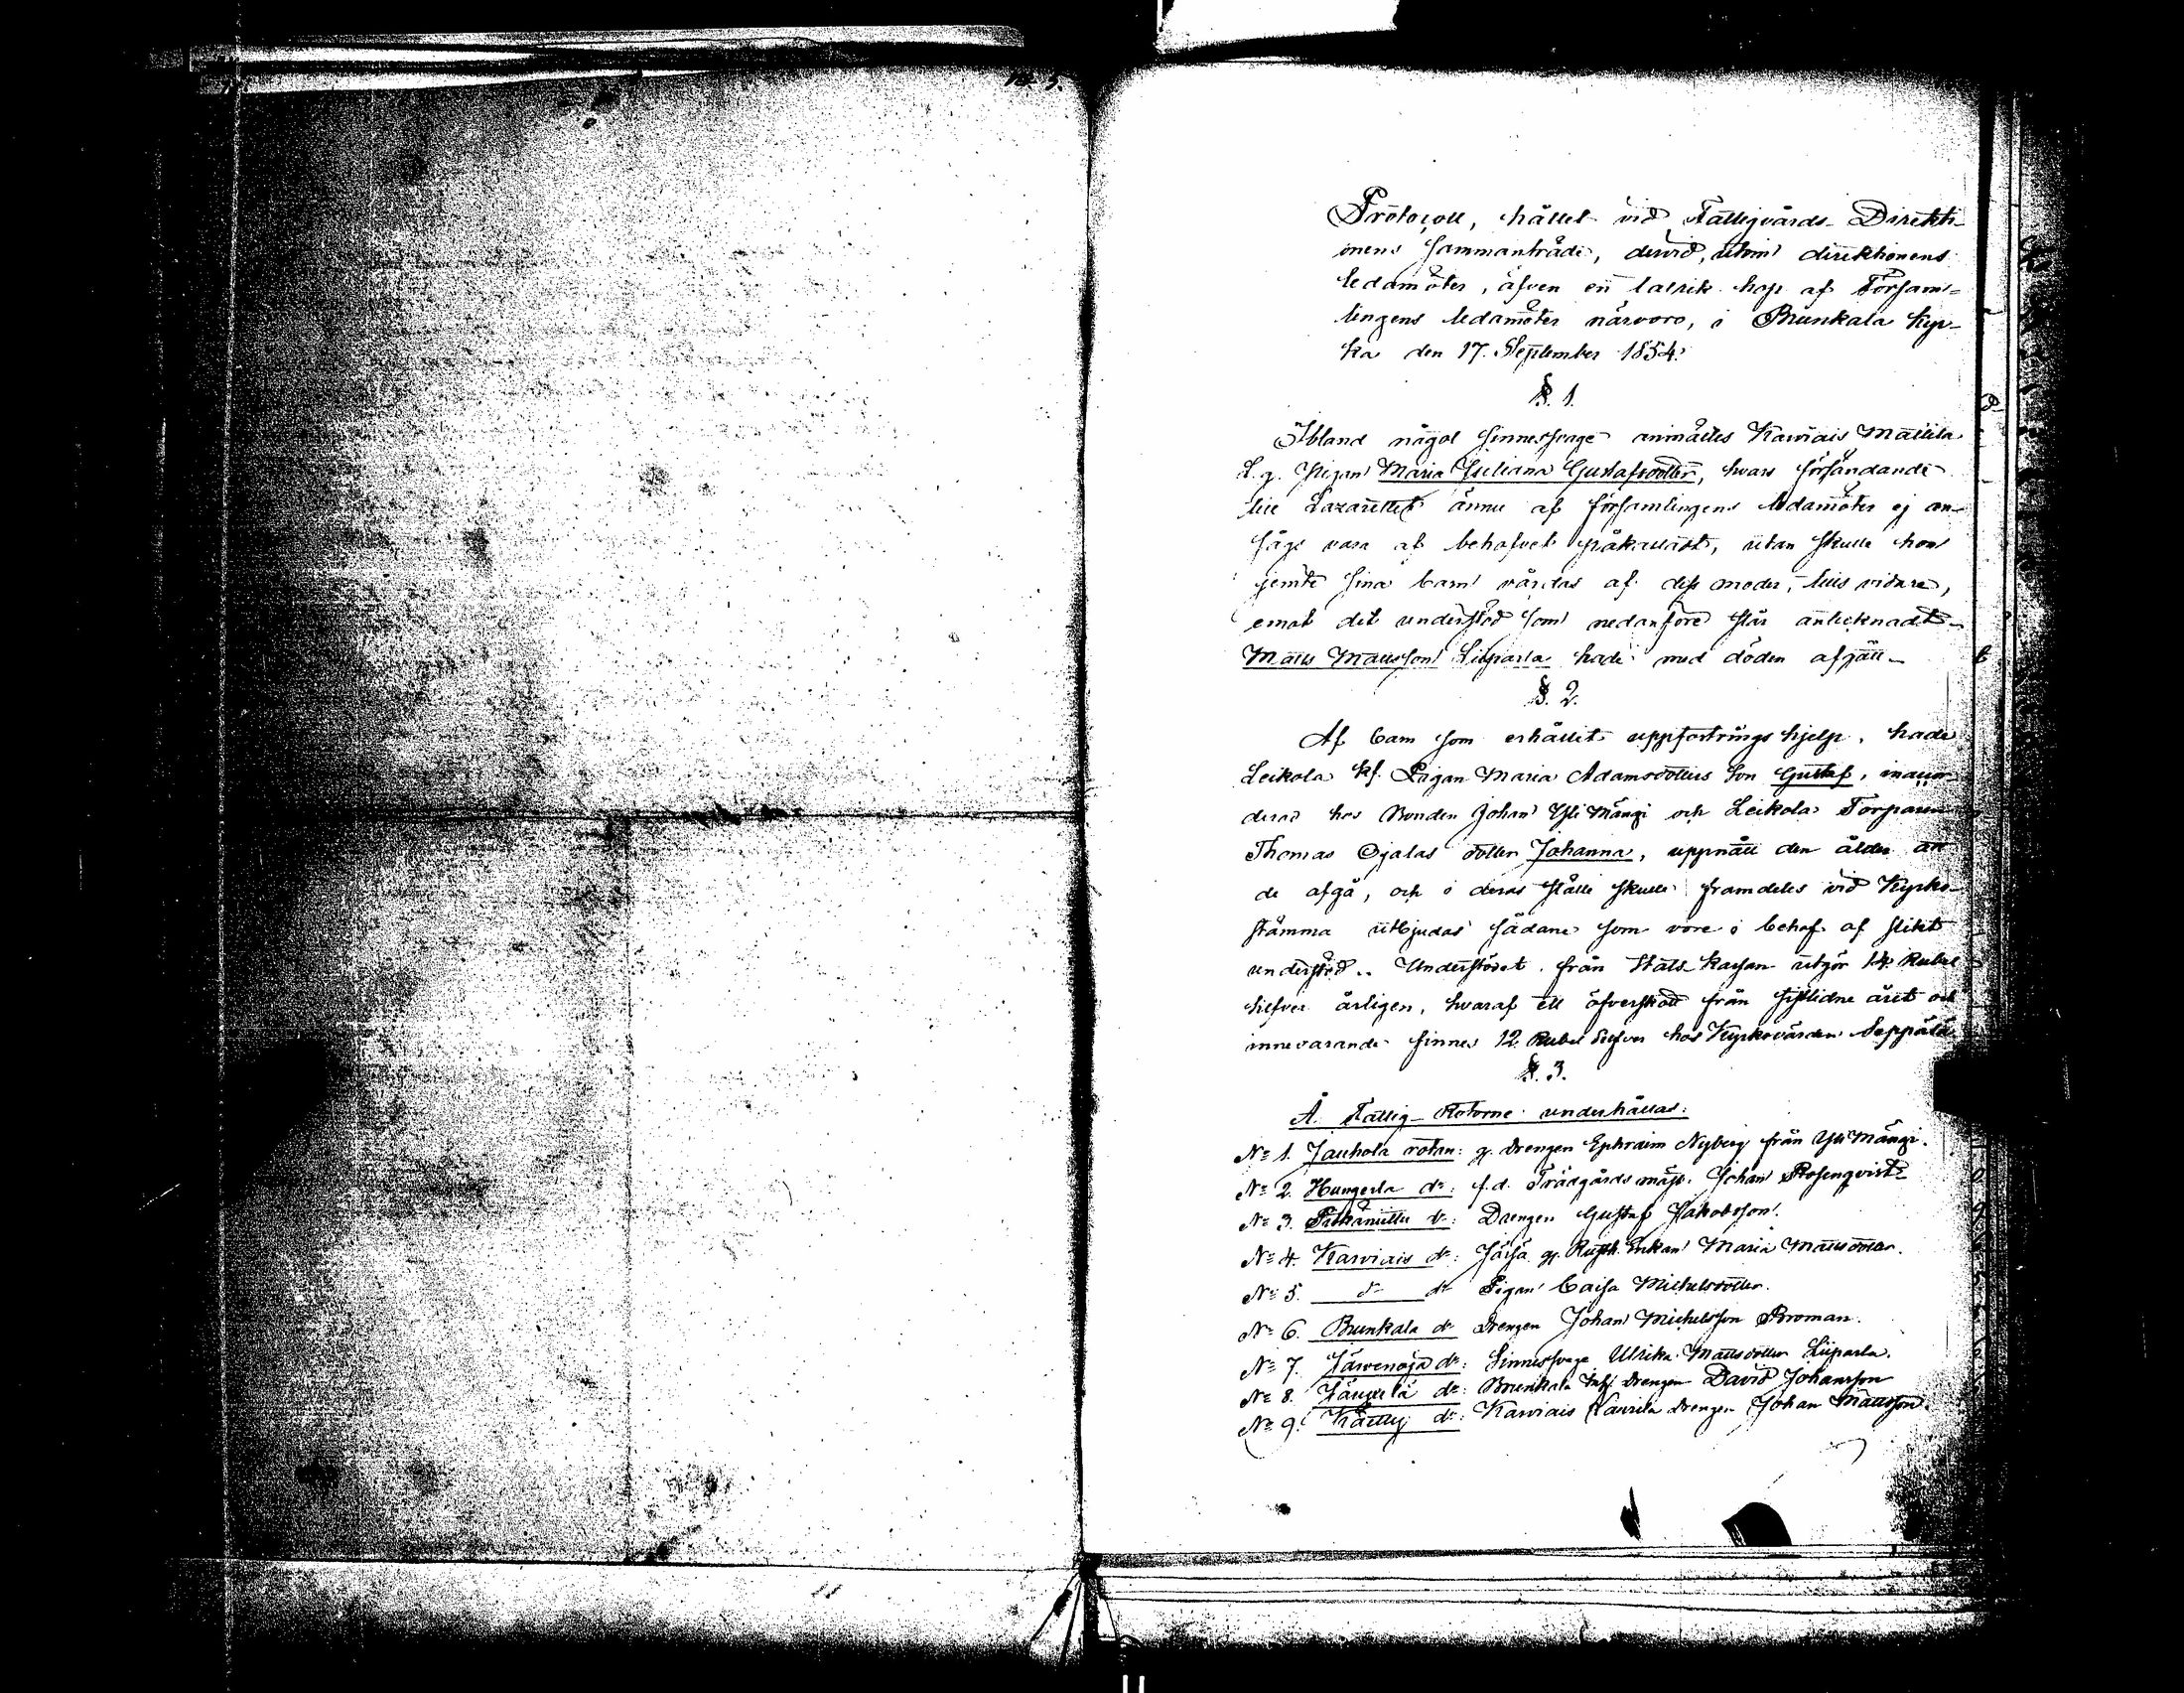 Protocoll, hållet vid Fattigvårds-Direkti-
onens sammanträde, dervid, utom direktionens
ledamöter, äfven en talrik hop af Försam-
lingens ledamöter närvoro, i Brunkala Kyr-
ka den 17. September 1854.
§. 1.
Ibland något sinnessvage anmältes Karviais Mattila
Maria Juliana Gustafsdotter, hvars försändande
till Lazarettet ännu af församlingens ledamöter ej an-
sågs vara af behofvet påkalladt, utan skulle hon
jemte sina barn vårdas af dess moder, tills vidare,
emot det understöd som nedanföre står antecknadt_
Matts Mattsson Liiparla hade med döden afgått_
§. 2.
Af barn som erhållit uppfostrings hjelp, hade
Leikola Pigan Maria Adamsdotters Son Gustaf,
hos Bonden Johan Yli Mängi och Leikola Torparen
Thomas Ojalas dotter Johanna, uppnått den ålder att
de afgå, och i deras ställe skulle framdeles vid Kyrko-
stämma utbjudas sådane som vore i behof af slikt
understöd.. Understödet från Stats-Kassan utgör 14 Rubel
silfver årligen, hvaraf ett öfverskott från sistlidne året och
innevarande finnes 12 Rubel Silfver hos Kyrkovärden Seppälä
§. 3.
Å Fattig-Rotorne underhållas:
No 1. Jauhola rotan: g. drengen Ephraim Nyberg från Yli Mängi.
No 2. Hungerla do: f.d. Trädgårds mäst. Johan Rosenqvist
No 3. do: Drengen Gustaf Jakobsson.
No 4. Karviais do: Enkan Maria Mattsdotter.
No 5. do do Pigan Caisa Michelsdotter.
No 6. Brunkala do Drengen Johan Michelsson Broman.
No 7. Järvenoja do: Sinnessvage Ulrika Mattsdotter Liiparla.
No 8. do: Brunkala drengen David Johansson
No 9. do: Karviais Laurila drengen Johan Mattsson.